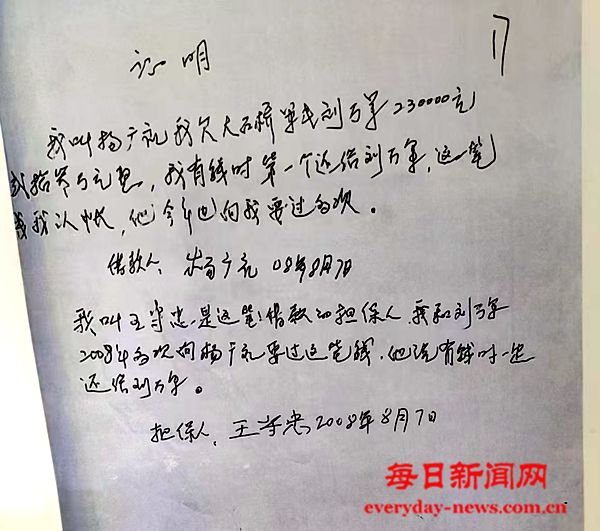 证明
17
我叫杨广礼我欠大石桥 刘万军230000元
贰拾 万元 ，我有钱时第一个还给刘万军，这一笔
我认帐，他今年也向我要过多次。
借款人 杨广礼 08年8月7日
我叫王守忠，是这笔借款的担保人，我和刘万军
2008年多次向杨广礼要过这笔钱，他说有钱时一定
还给刘万军。
担保人，王守忠2008年8月7日
每日新闻网
everyday-news.com.cn